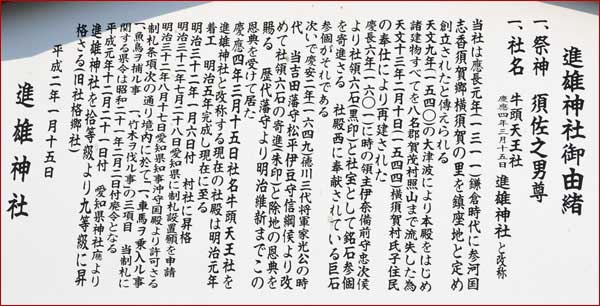 進雄神社御由緒
一、祭神　須佐之男尊
一、社名　牛頭天王社　慶應四年三月十五日　進雄神社と改称
当社は應長元年(一三一一)鎌倉時代に参河国
志香須賀郷横須賀の里を鎮座地と定め
創立されたと傳えられる
天文九年(一五四〇)の大津波により本殿をはじめ
諸建物すべてを八名郡賀茂村照山まで流失した為
天文十三年二月十日(一五四四)横須賀村氏子住民
の奉仕により再建された
慶長六年(一六〇一)に時の領主伊奈備前守忠次侯
より社領六石(黒印)と社宝として銘石参個
を寄進さる　社殿西に奉献されている巨石
参個がそれである
次いで慶安二年(一六四九)徳川三代将軍家光公の時
代　当吉田藩守松平伊豆守信綱侯より改
めて社領六石の寄進(朱印)と除地の恩典を
賜る　歴代藩守より明治維新までこの
恩典を受けて居た
慶應四年三月十五日社名牛頭天王社を
進雄神社と改称する現在の社殿は明治元年
着工　明治五年完成し現在に至る
明治三十二年一月六日　村社に昇格
明治三十二年七月二十八日愛知県に制札設置願を申請
明治三十二年八月十八日愛知県知事沖守固殿より許可さる
制札条項次の通り境内に於て一、車馬ヲ乗入ル事
一、魚鳥ヲ捕ル事　一、竹木ヲ伐ル事の三項目　当制札に
関する県令は昭和二十一年二月二日付廃令となる
平成元年十二月二十一日付　愛知県神社庁より
進雄神社を拾等級より九等級に昇
格さる(旧社格郷社)
平成二年一月十五日
進雄神社